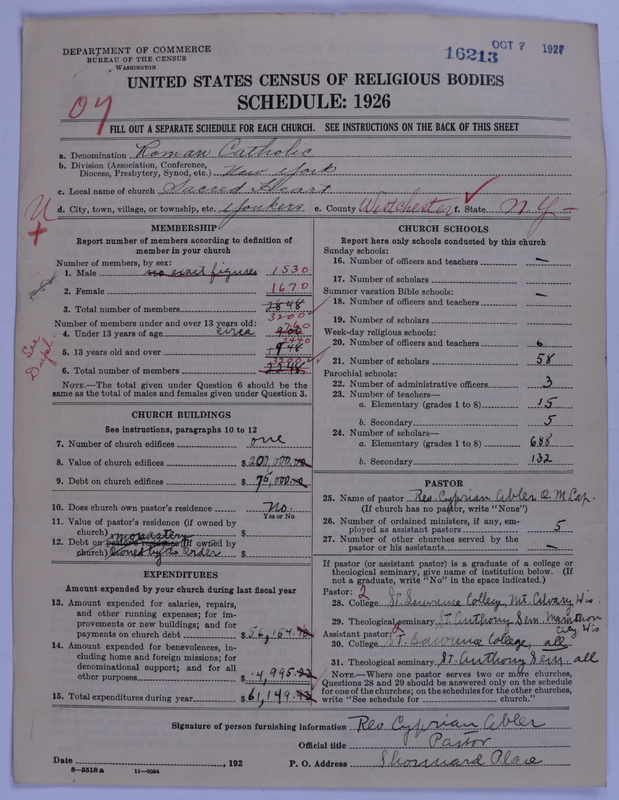 DEPARTMENT OF COMMERCE
BUREAU OF THE CENSUS
WASHINGTON
16213
OCT 7 1927
UNITED STATES CENSUS OF RELIGIOUS BODIES
SCHEDULE: 1926
FILL OUT A SEPARATE SCHEDULE FOR EACH CHURCH. SEE INSTRUCTIONS ON THE BACK OF THIS SHEET
a. Denomination Roman Catholic
b. Division (Association, Conference, Diocese, Presbytery, Synod, etc.) New York
c. Local name of church Sacred Heart
d. City, town, village, or township, etc. Yonkers e. County Westchester f. State N.Y.
MEMBERSHIP
Report number of members according to definition of
member in your church
Number of members, by sex:
1. Male no exact figures 1530
2. Female 1670
3. Total number of members 2848 3200
Number of members under and over 13 years old:
4. Under 13 years of age circa 900
5. 13 years old and over 1948
6. Total number of members 3200
NOTE.—The total given under Question 6 should be the
same as the total of males and females given under Question 3.
CHURCH BUILDINGS
See instructions, paragraphs 10 to 12
7. Number of church edifices one
8. Value of church edifices $ 200,000
9. Debt on church edifices $ 70,000
10. Does church own pastor's residence No.
Yes or No
11. Value of pastor's residence (if owned by
church) monastery $
12. Debt on pastor's residence (if owned by
church) owned by the Order $
EXPENDITURES
Amount expended by your church during last fiscal year
13. Amount expended for salaries, repairs,
and other running expenses; for im-
provements or new buildings; and for
payments on church debt $ 56,154
14. Amount expended for benevolences, in-
cluding home and foreign missions; for
denominational support; and for all
other purposes $ 4,995
15. Total expenditures during year $ 61,149
CHURCH SCHOOLS
Report here only schools conducted by this church
Sunday schools:
16. Number of officers and teachers —
17. Number of scholars
Summer vacation Bible schools:
18. Number of officers and teachers —
19. Number of scholars
Week-day religious schools:
20. Number of officers and teachers 6
21. Number of scholars 58
Parochial schools:
22. Number of administrative officers 3
23. Number of teachers—
a. Elementary (grades 1 to 8) 15
b. Secondary 5
24. Number of scholars—
a. Elementary (grades 1 to 8) 688
b. Secondary 132
PASTOR
25. Name of pastor Rev. Cyprian Abler O.M.Cap.
(If church has no pastor, write "None")
26. Number of ordained ministers, if any, em-
ployed as assistant pastors 5
27. Number of other churches served by the
pastor or his assistants —
If pastor (or assistant pastor) is a graduate of a college or
theological seminary, give name of institution below. (If
not a graduate, write "No" in the space indicated.)
Pastor: 2
28. College St. Lawrence College, Mt. Calvary Wis.
29. Theological seminary St. Anthony Sem. Marathon City Wis
Assistant pastor: 2
30. College St. Lawrence College, all
31. Theological seminary St. Anthony Sem. all
NOTE.—Where one pastor serves two or more churches,
Questions 28 and 29 should be answered only on the schedule
for one of the churches; on the schedules for the other churches,
write "See schedule for church."
Signature of person furnishing information Rev. Cyprian Abler
Official title Pastor
Date , 192 P. O. Address Shonnard Place
8-5518 a 11-9034